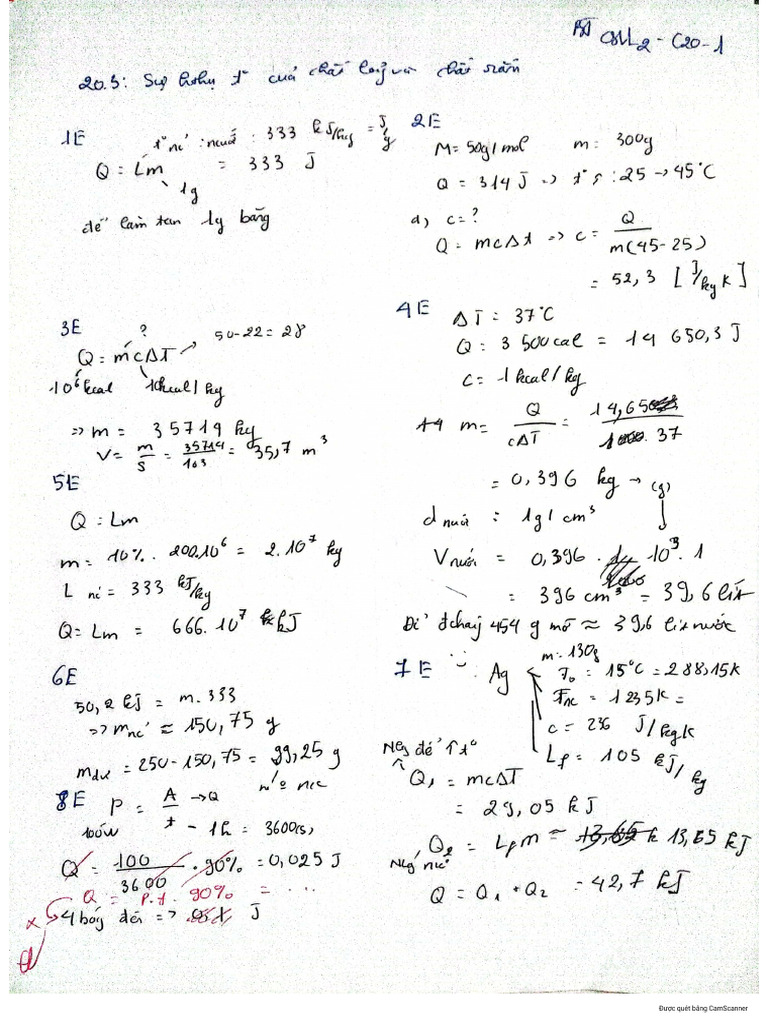 BT CSVL2 - C20-1
20.3: Sự hthụ t° của chất lỏng và chất rắn
1E
t° nc' : nước : 333 kJ/kg = J/g
Q = Lm = 333 J
1g
để làm tan 1g băng
2E
M = 50g/mol m = 300g
Q = 314 J => t° s : 25 → 45°C
a) c = ?
Q = mcΔt => c = Q / m(45-25)
= 52,3 [J/kg K]
3E
? 50-22 = 28
Q = mcΔT
10^6 kcal 1kcal/kg
=> m = 35719 kg
V = m/S = 35714/10^3 = 35,7 m^3
4E
ΔT = 37°C
Q = 3 500cal = 14 650,3 J
c = 1 kcal/kg
m = Q/cΔT = 14,65 / . 37
= 0,396 kg → (g)
d nước = 1g/cm^3
V nước = 0,396 . 10^3 . 1
= 396 cm^3 = 39,6 lít
Để đchay 454 g mỡ ≈ 39,6 lít nước
5E
Q = Lm
m = 10% . 200.10^6 = 2.10^7 kg
L nc = 333 kJ/kg
Q = Lm = 666.10^7 kJ
6E
50,2 kJ = m.333
=> m nc' ≈ 150,75 g
m dư = 250 - 150,75 = 99,25 g
7E
Ag
m = 130g
T₀ = 15°C = 288,15K
Tnc = 1235K =
c = 236 J/kg.K
Lf = 105 kJ/kg
Nlg để ↑ t°
Q₁ = mcΔT
= 29,05 kJ
Q₂ = Lf m ≈ 13,65 kJ
Nlg nc'
Q = Q₁ + Q₂ = 42,7 kJ
8E
P = A/t → Q
100W t - 1h = 3600(s)
Q = 100/3600 . 90% = 0,025 J
Q = P.t . 90% = ...
4 bóng đèn => J
Được quét bằng CamScanner